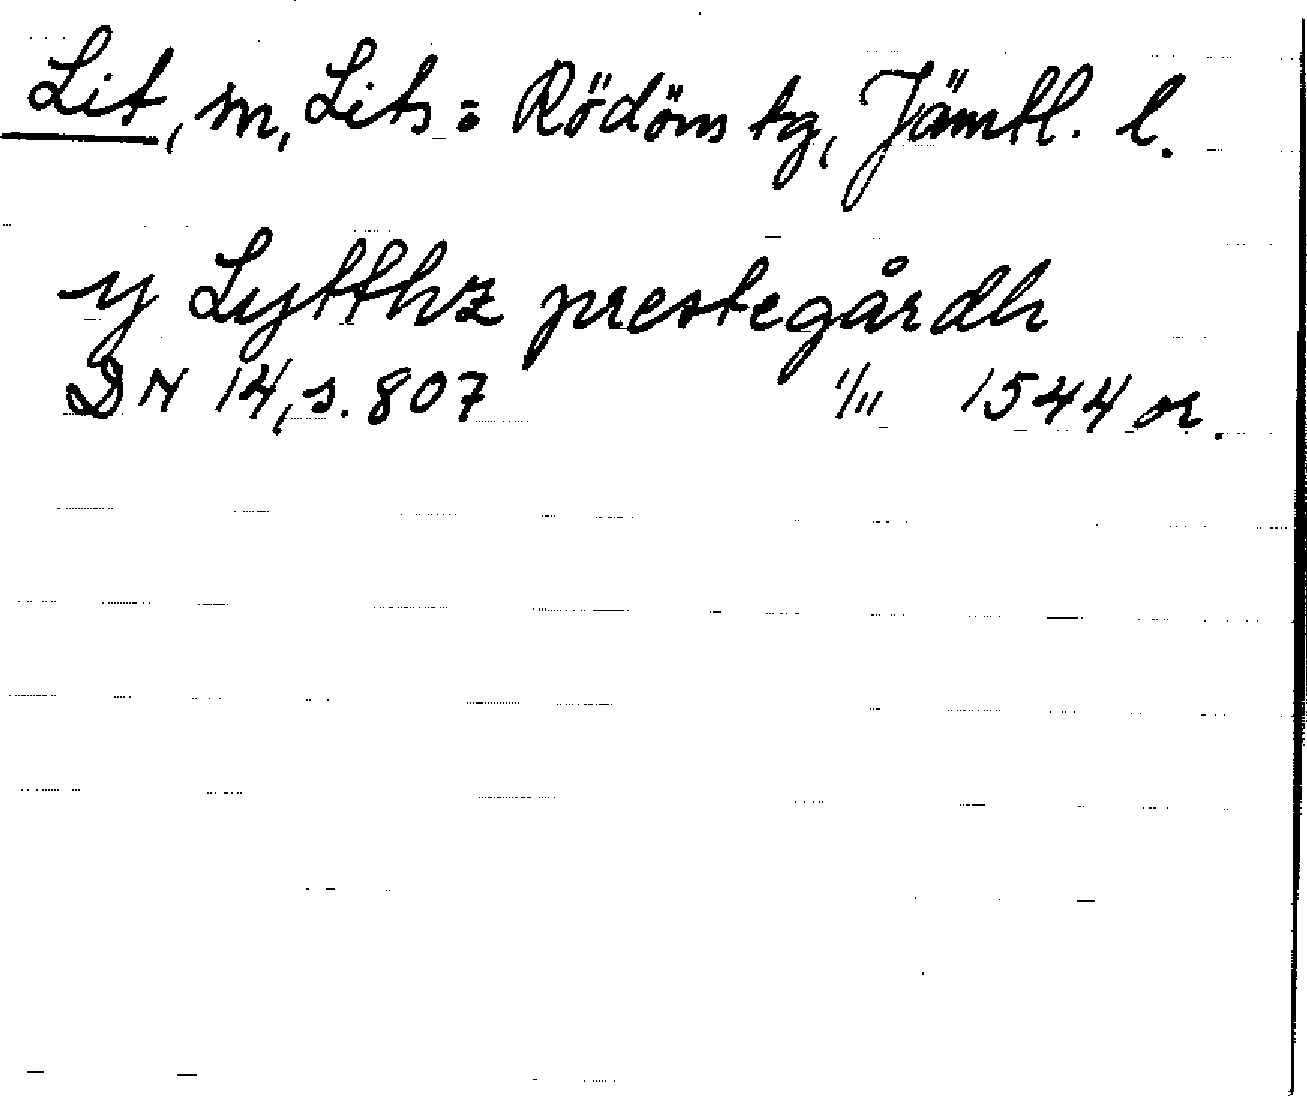 Lit, sn, Lits = Rödöns tg, Jämtl. l.
y Lytthz prestegårdh
DN 14, s. 807 1/11 1544 or.